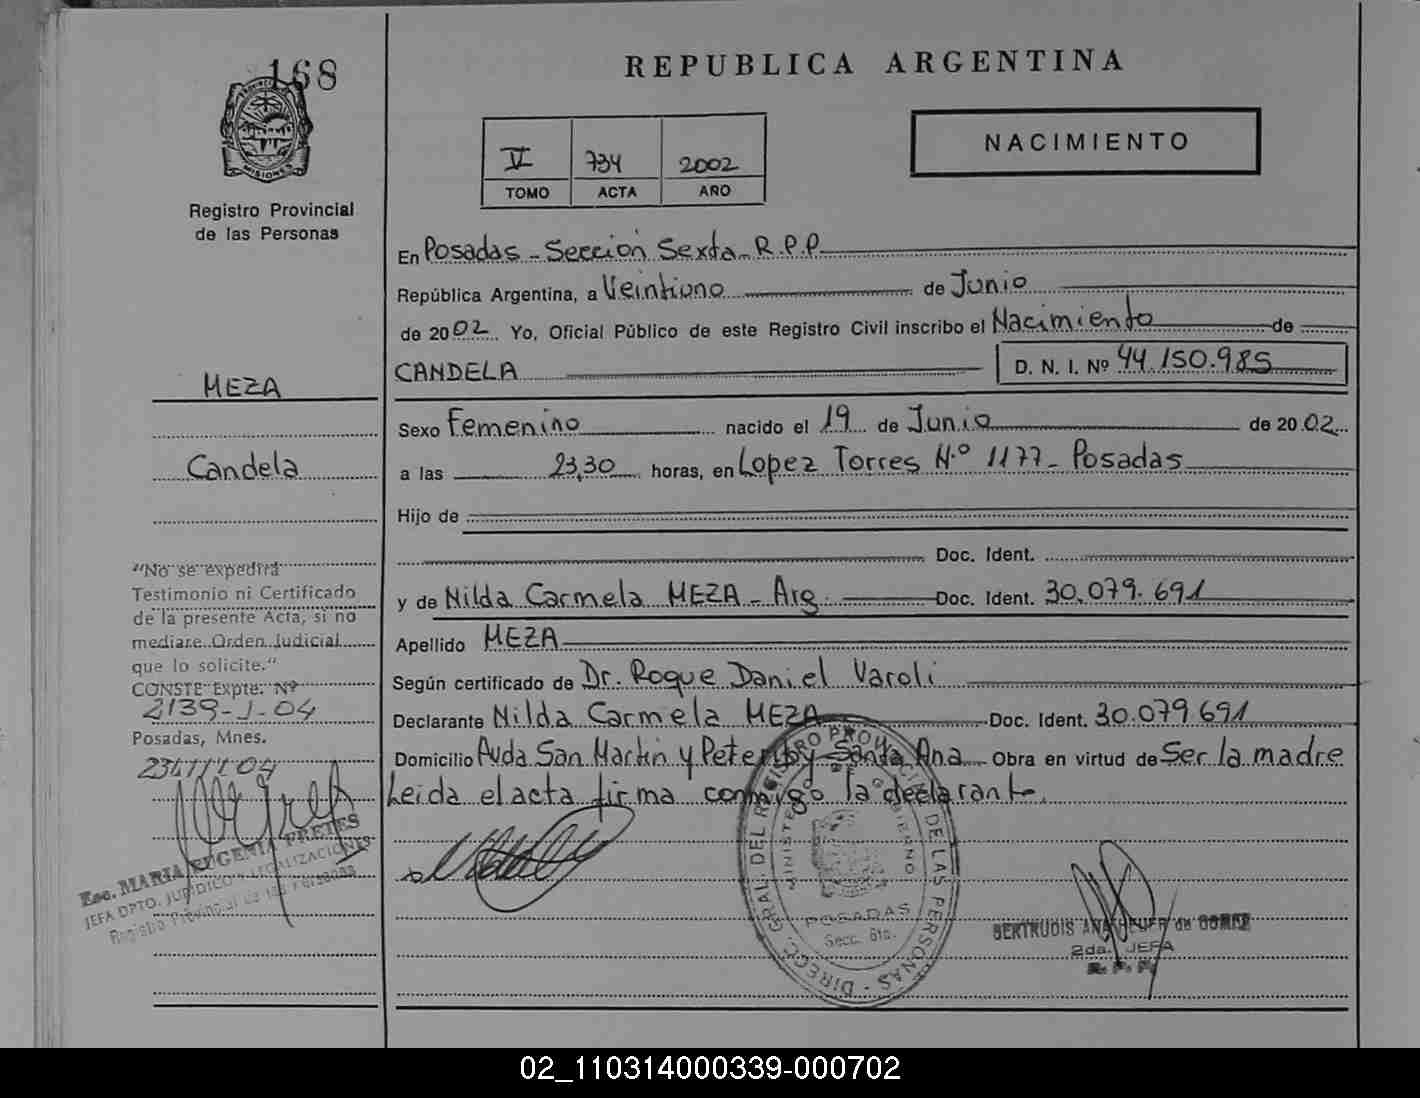 168
REPUBLICA ARGENTINA
MISIONES
Registro Provincial
de las Personas
V 734 2002
TOMO ACTA AÑO
NACIMIENTO
En Posadas - Sección Sexta - R.P.P.
República Argentina, a Veintiuno de Junio
de 2002 Yo, Oficial Público de este Registro Civil inscribo el Nacimiento de
CANDELA D. N. I. Nº 44.150.985
MEZA
Sexo Femenino nacido el 19 de Junio de 2002
Candela
a las 23,30 horas, en Lopez Torres N.º 1177 - Posadas
Hijo de
Doc. Ident.
"No se expedirá
Testimonio ni Certificado
de la presente Acta, si no
mediare Orden Judicial
que lo solicite."
CONSTE Expte. Nº
2139-J-04
Posadas, Mnes.
y de Nilda Carmela MEZA - Arg. Doc. Ident. 30.079.691
Apellido MEZA
Según certificado de Dr. Roque Daniel Varoli
Declarante Nilda Carmela MEZA Doc. Ident. 30.079.691
Domicilio Avda San Martin y Santa Ana Obra en virtud de Ser la madre
Leida el acta firma conmigo la declarante.
Esc. MARIA EUGENIA PRETES
JEFA DPTO. JURIDICO Y LEGALIZACIONES
Registro Provincial de las Personas
DIRECC. GRAL. DEL REGISTRO PROVINCIAL DE LAS PERSONAS
MINISTERIO DE GOBIERNO
POSADAS
Secc. 6ta.
GERTRUDIS de
2da. JEFA
R. P. P.
02_110314000339-000702